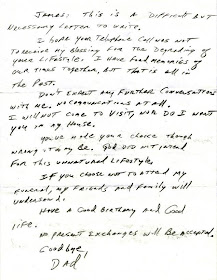 JAMES: This is A Difficult BUT
Necessary Letter to write.
I hope your telephone call was not
to receive my blessing for the Degrading of
your Lifestyle. I have fond memories of
our times together, but that is all in
the Past.
Don't expect any further conversations
with me. No communications at all.
I will not come to visit, nor do I want
you in my house.
You've made your choice though
wrong it may be. God did not intend
for this unnatural lifestyle.
If you choose not to attend my
funeral, my friends and family will
understand.
Have a good Birthday and good
life.
No present exchanges will be accepted.
Goodbye
Dad!